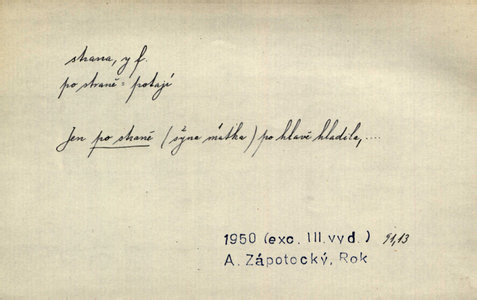 strana, y f.
po straně = potají
Jen po straně (syna matka) po hlavě hladila, ....
1950 (exc. III. vyd.) 91,13
A. Zápotocký, Rok